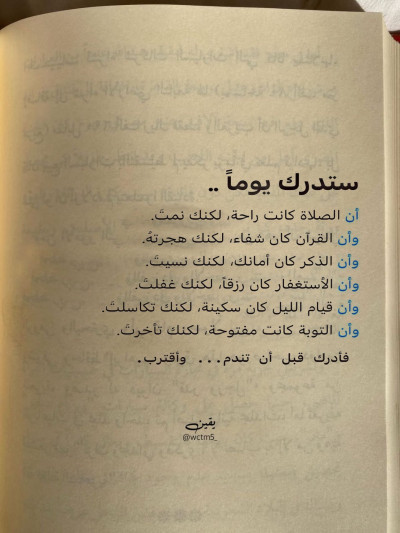 ستدرك يوماً ..
أن الصلاة كانت راحة، لكنك نمت.
وأن القرآن كان شفاء، لكنك هجرتهُ.
وأن الذكر كان أمانك، لكنك نسيت.
وأن الأستغفار كان رزقاً، لكنك غفلت.
وأن قيام الليل كان سكينة، لكنك تكاسلت.
وأن التوبة كانت مفتوحة، لكنك تأخرت.
فأدرك قبل أن تندم... وأقترب.
يقين
@wctm5_